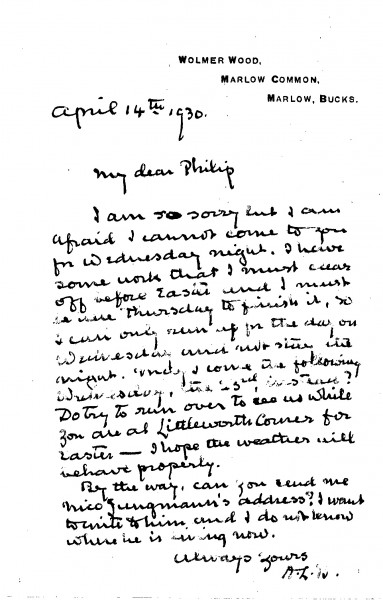 WOLMER WOOD,
MARLOW COMMON,
MARLOW, BUCKS.
April 14th 1930.
My dear Philip
I am so sorry but I am
afraid I cannot come to you
for Wednesday night. I have
some work that I must clear
off before Easter and I must
be here Thursday to finish it, so
I can only run up for the day on
Wednesday and not stay the
night. May I come the following
Wednesday, the 23rd instead?
Do try to run over to see us while
you are at Littleworth Corner for
Easter — I hope the weather will
behave properly.
By the way, can you send me
Nico Jungmann's address? I want
to write to him and I do not know
where he is living now.
Always yours